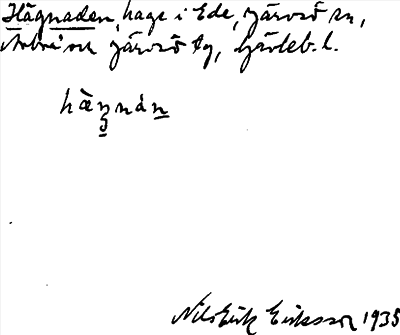 Hägnaden, hage i Ede, Järvsö sn,
Arbrå och Järvsö tg, Gävleb. l.
Nils Erik Eriksson 1935